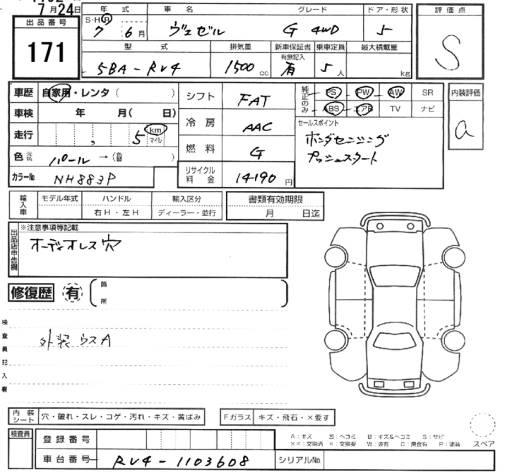 7月24日
出品番号
171
年式 車名 グレード ドア・形状
S・H・R 7年 6月 ヴェゼル G 4WD 5
型式 排気量 新車保証書 乗車定員 最大積載量
5BA-RV4 1500cc 有無記入 有 5人 kg
評価点
S
車歴 自家用・レンタ( )
車検 年 月( 日)
走行 , 5 km マイル
色 パール→( )
カラーNo NH883P
シフト FAT
冷房 AAC
燃料 G
リサイクル料金 14190円
純正のみ PS PW AW SR
ABS エアB TV ナビ
セールスポイント
ホンダセンシング
プッシュスタート
内装評価
a
輸入車 モデル年式 ハンドル 輸入区分
右H・左H ディーラー・並行
書類有効期限
月 日迄
出品店申告欄
※注意事項等記載
オーディオレス穴
修復歴 有 箇所
検査員記入欄
外装 ウスA
内装シート 穴・破れ・スレ・コゲ・汚れ・キズ・黄ばみ
Fガラス キズ・飛石・×要す
スペア
検査員
登録番号
車台番号 RV4-1103608 シリアルNo